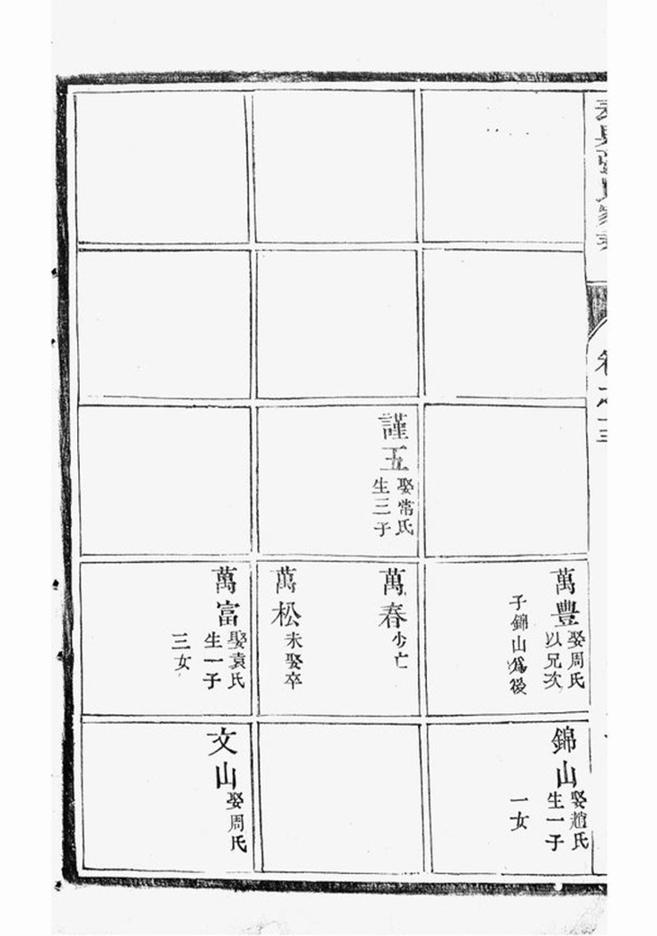 卷之三
謹五
娶常氏
生三子
萬豐
娶周氏
以兄次
子錦山爲後
萬春
少亡
萬松
未娶卒
萬富
娶袁氏
生一子
三女
錦山
娶趙氏
生一子
一女
文山
娶周氏